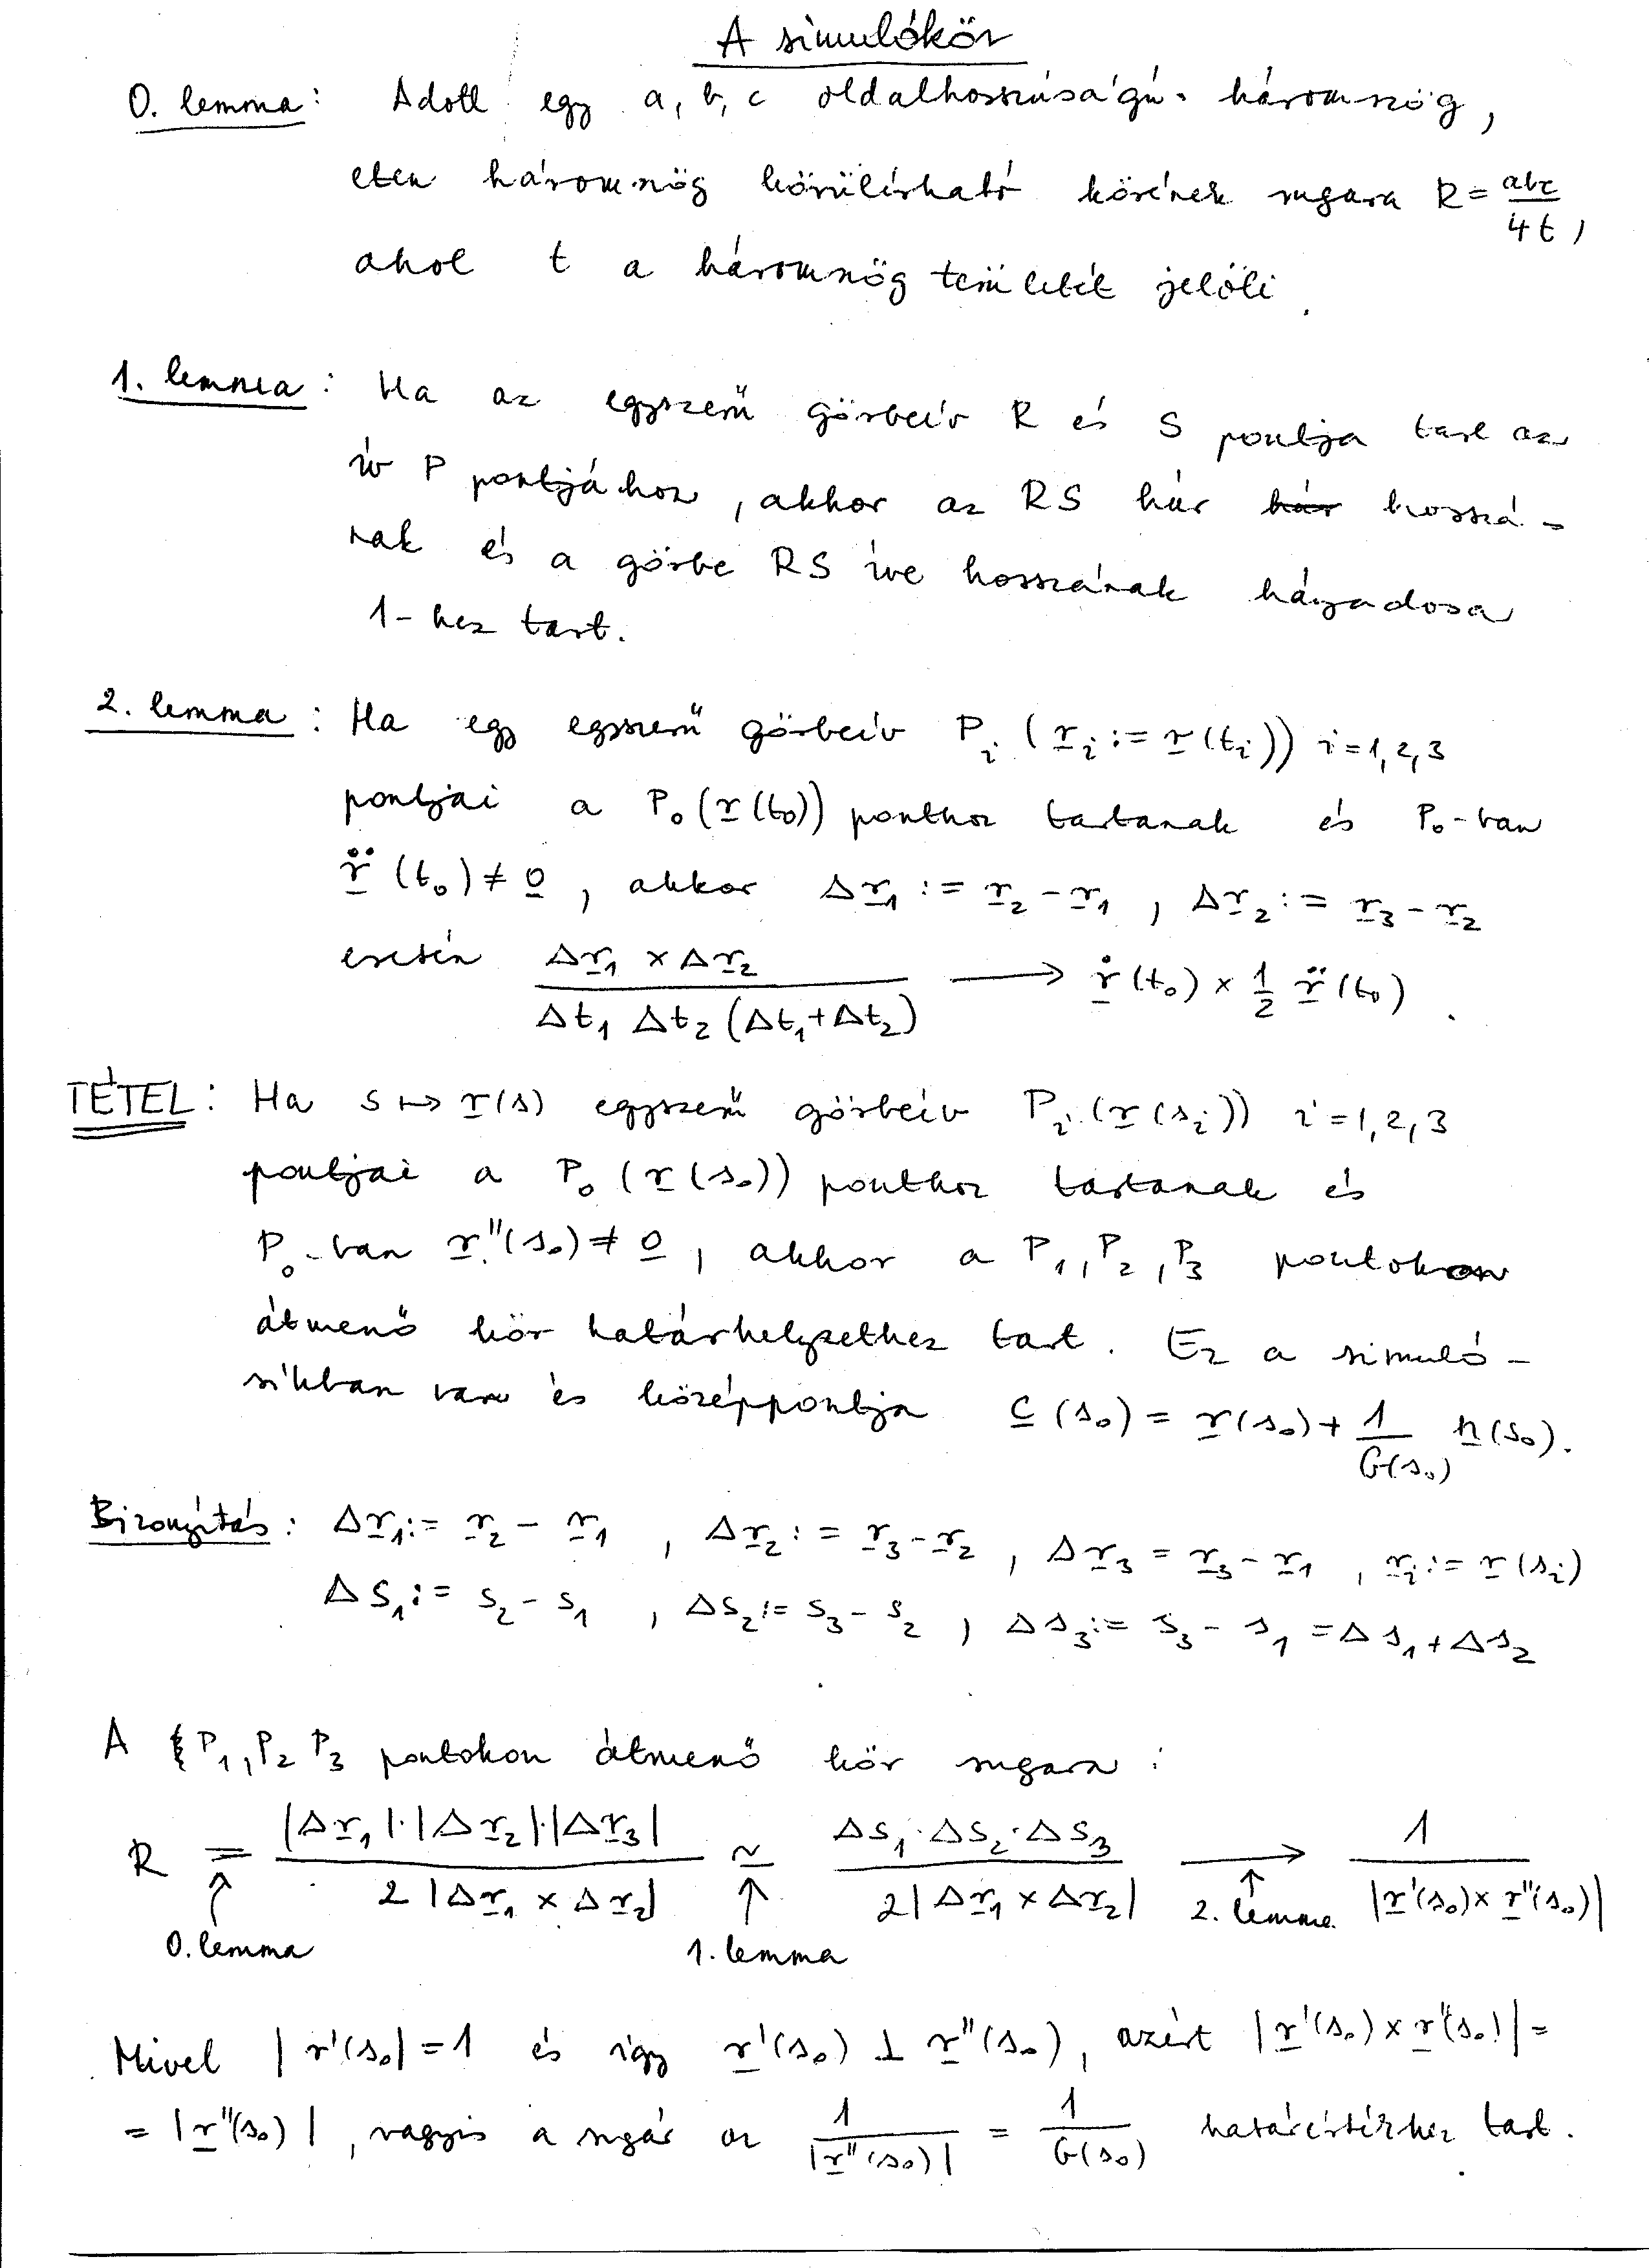 A simulókör
0. lemma: Adott egy a, b, c oldalhosszúságú háromszög,
ezen háromszög körülírható körének sugara R = abc/4t,
ahol t a háromszög területét jelöli.
1. lemma: Ha az egyszerű görbeív R és S pontja tart az
ív P pontjához, akkor az RS húr húr hosszá-
nak és a görbe RS íve hosszának hányadosa
1-hez tart.
2. lemma: Ha egy egyszerű görbeív P_i (r_i := r(t_i)) i=1,2,3
pontjai a P_0(r(t_0)) ponthoz tartanak és P_0-ban
r̈(t_0) ≠ 0, akkor Δr_1 := r_2 − r_1, Δr_2 := r_3 − r_2
esetén (Δr_1 × Δr_2)/(Δt_1 Δt_2 (Δt_1+Δt_2)) ⟶ ṙ(t_0) × 1/2 r̈(t_0).
TÉTEL: Ha s ↦ r(s) egyszerű görbeív P_i (r(s_i)) i=1,2,3
pontjai a P_0 (r(s_0)) ponthoz tartanak és
P_0-ban r''(s_0) ≠ 0, akkor a P_1, P_2, P_3 pontokon
átmenő kör határhelyzethez tart. Ez a simuló-
síkban van és középpontja c(s_0) = r(s_0) + 1/G(s_0) n(s_0).
Bizonyítás: Δr_1 := r_2 − r_1, Δr_2 := r_3 − r_2, Δr_3 = r_3 − r_1, r_i := r(s_i)
Δs_1 := s_2 − s_1, Δs_2 := s_3 − s_2, Δs_3 := s_3 − s_1 = Δs_1 + Δs_2
A P_1, P_2 P_3 pontokon átmenő kör sugara:
R = |Δr_1|·|Δr_2|·|Δr_3| / 2|Δr_1 × Δr_2| ≃ Δs_1·Δs_2·Δs_3 / 2|Δr_1 × Δr_2| ⟶ 1/|r'(s_0) × r''(s_0)|
↑ ↑ ↑
0. lemma 1. lemma 2. lemma
Mivel |r'(s_0| = 1 és így r'(s_0) ⊥ r''(s_0), azért |r'(s_0) × r''(s_0)| =
= |r''(s_0)|, vagyis a sugár az 1/|r''(s_0)| = 1/G(s_0) határértékhez tart.